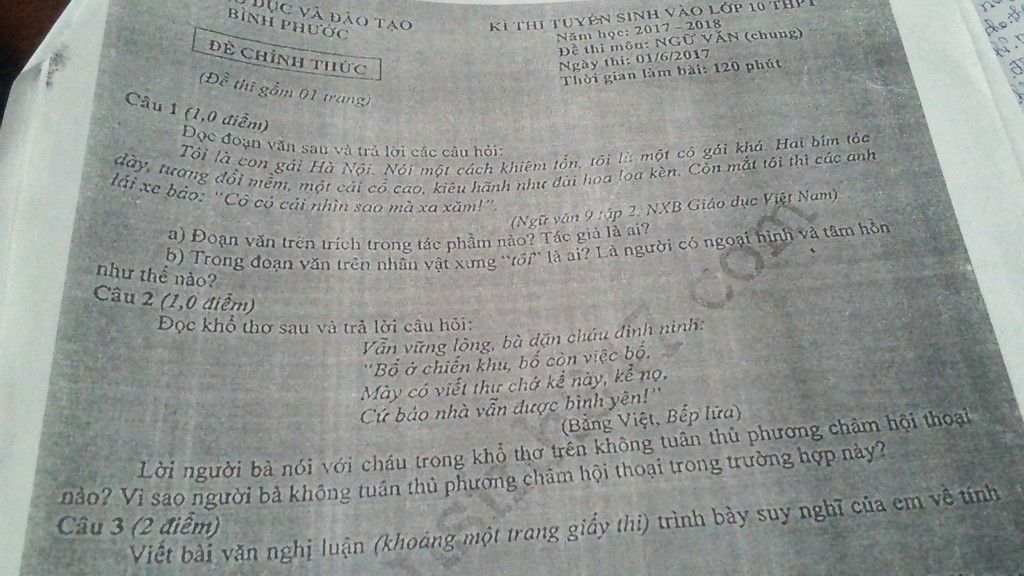 DỤC VÀ ĐÀO TẠO
BÌNH PHƯỚC
ĐỀ CHÍNH THỨC
(Đề thi gồm 01 trang)
KÌ THI TUYỂN SINH VÀO LỚP 10 THPT
Năm học: 2017 - 2018
Đề thi môn: NGỮ VĂN (chung)
Ngày thi: 01/6/2017
Thời gian làm bài: 120 phút
Câu 1 (1,0 điểm)
Đọc đoạn văn sau và trả lời các câu hỏi:
Tôi là con gái Hà Nội. Nói một cách khiêm tốn, tôi là một cô gái khá. Hai bím tóc
dày, tương đối mềm, một cái cổ cao, kiêu hãnh như đài hoa loa kèn. Còn mắt tôi thì các anh
lái xe bảo: "Cô có cái nhìn sao mà xa xăm!".
(Ngữ văn 9 tập 2, NXB Giáo dục Việt Nam)
a) Đoạn văn trên trích trong tác phẩm nào? Tác giả là ai?
b) Trong đoạn văn trên nhân vật xưng "tôi" là ai? Là người có ngoại hình và tâm hồn
như thế nào?
Câu 2 (1,0 điểm)
Đọc khổ thơ sau và trả lời câu hỏi:
Vẫn vững lòng, bà dặn cháu đinh ninh:
"Bố ở chiến khu, bố còn việc bố,
Mày có viết thư chớ kể này, kể nọ,
Cứ bảo nhà vẫn được bình yên!"
(Bằng Việt, Bếp lửa)
Lời người bà nói với cháu trong khổ thơ trên không tuân thủ phương châm hội thoại
nào? Vì sao người bà không tuân thủ phương châm hội thoại trong trường hợp này?
Câu 3 (2 điểm)
Viết bài văn nghị luận (khoảng một trang giấy thi) trình bày suy nghĩ của em về tính